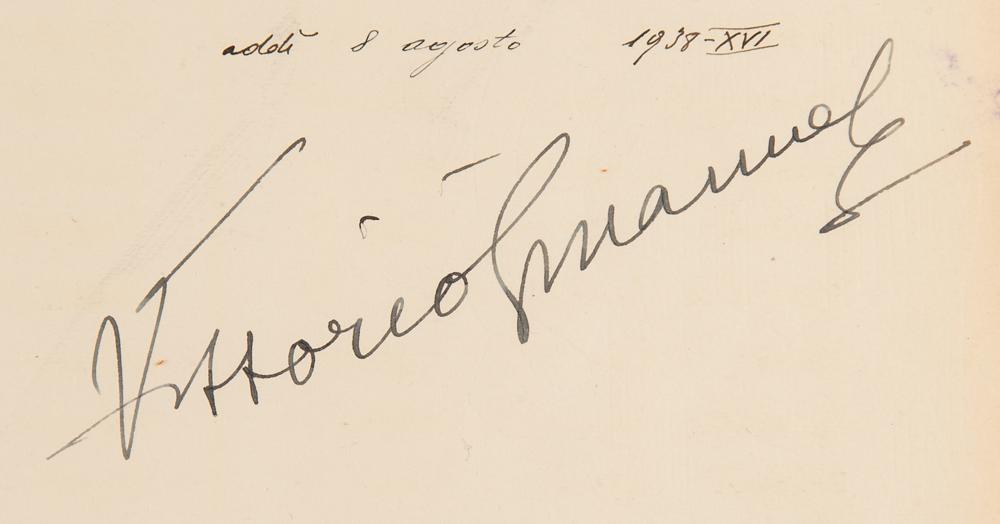 addì 8 agosto 1938-XVI
Vittorio Emanuele